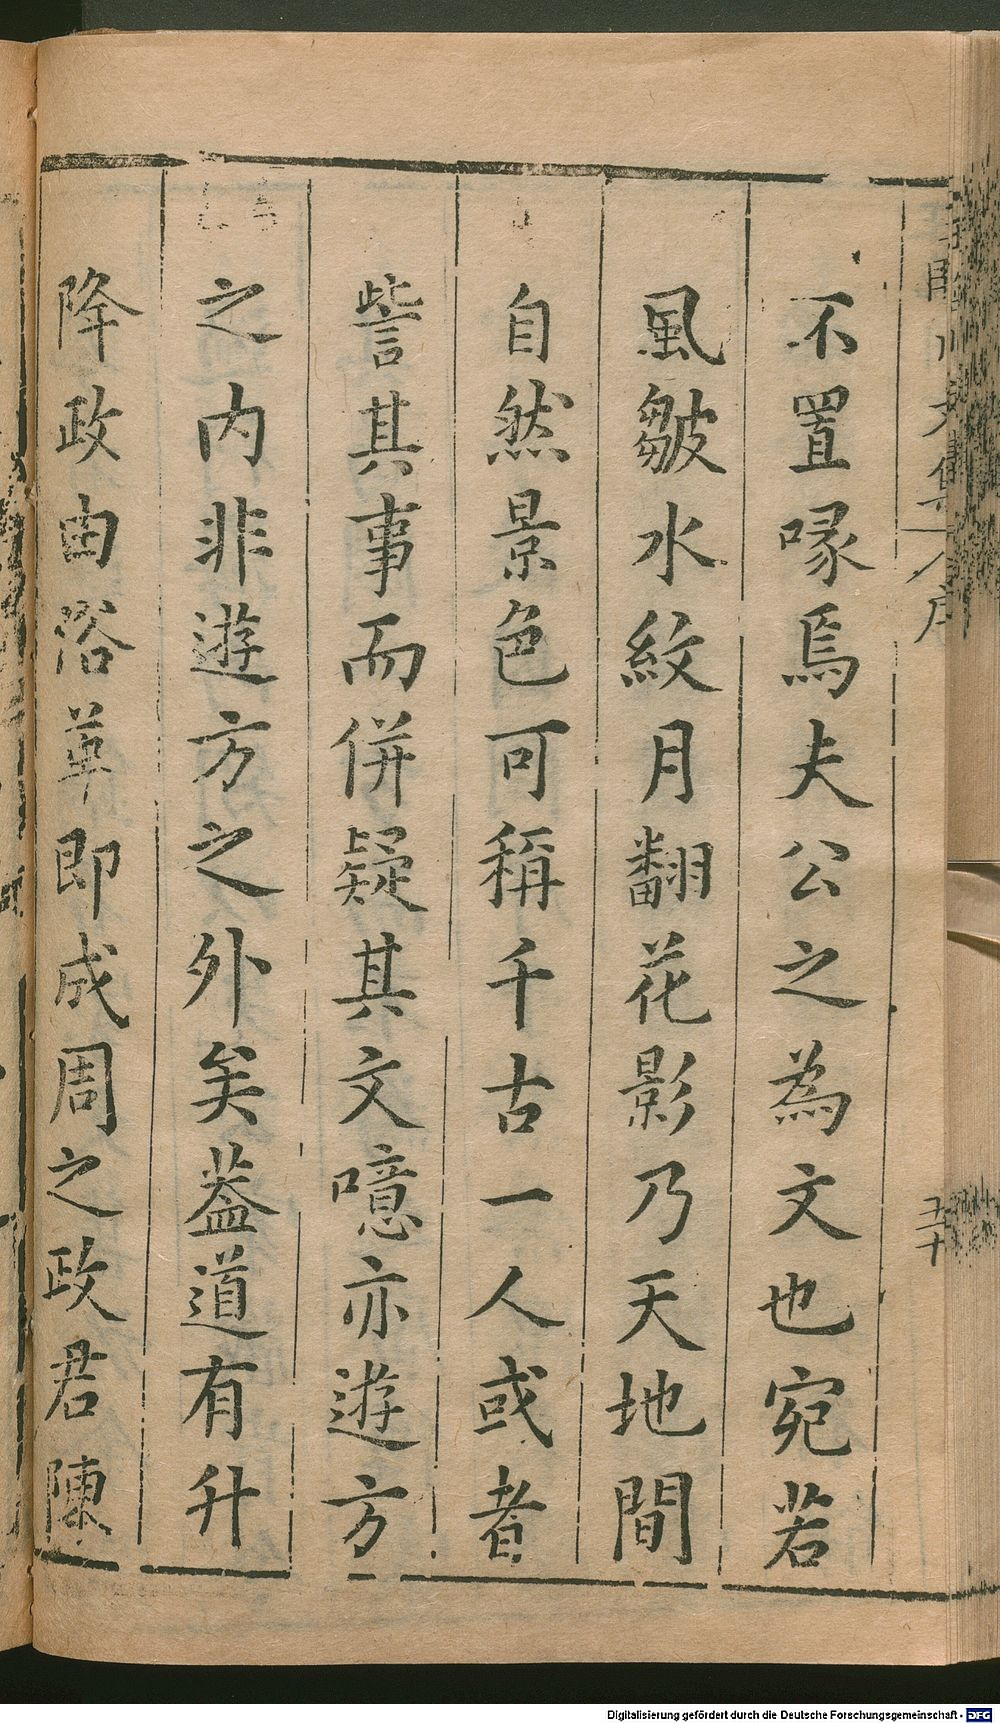 不置喙焉夫公之為文也宛若
風皺水紋月翻花影乃天地間
自然景色可稱千古一人或者
訾其事而併疑其文噫亦遊方
之内非遊方之外矣葢道有升
降政由俗革即成周之政君陳
文集
序
Digitalisierung gefördert durch die Deutsche Forschungsgemeinschaft - DFG